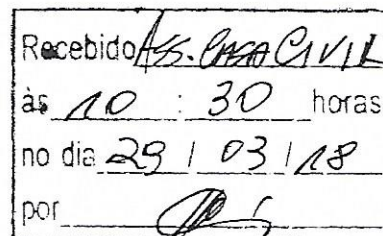 Recebido Ass. CASA CIVIL
às 10 : 30 horas
no dia 29 / 03 / 18
por